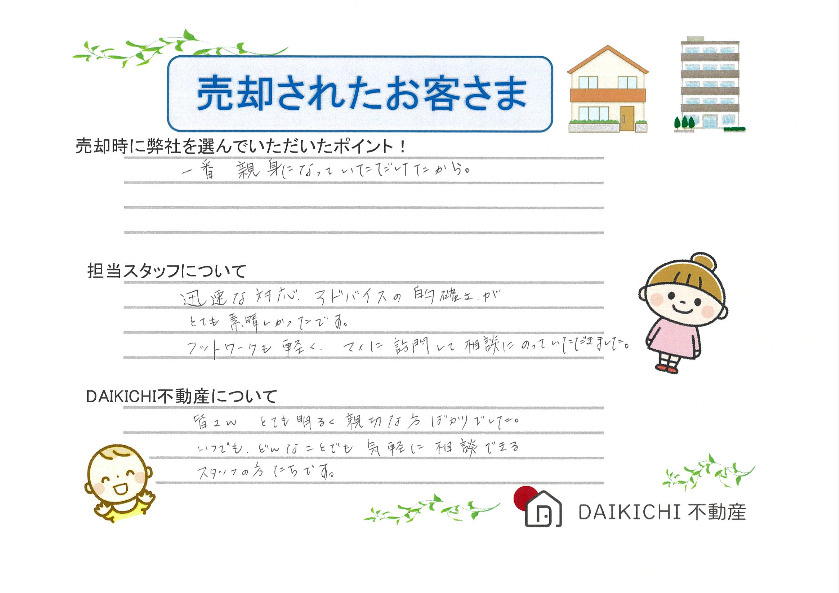 売却されたお客さま
売却時に弊社を選んでいただいたポイント！
一番 親身になっていただけたから。
担当スタッフについて
迅速な対応、アドバイスの的確さが
とても素晴しかったです。
フットワークも軽く、すぐに訪問して相談にのっていただきました。
DAIKICHI不動産について
皆さん とても明るく親切な方ばかりでした。
いつでも、どんなことでも気軽に相談できる
スタッフの方たちです。
DAIKICHI 不動産